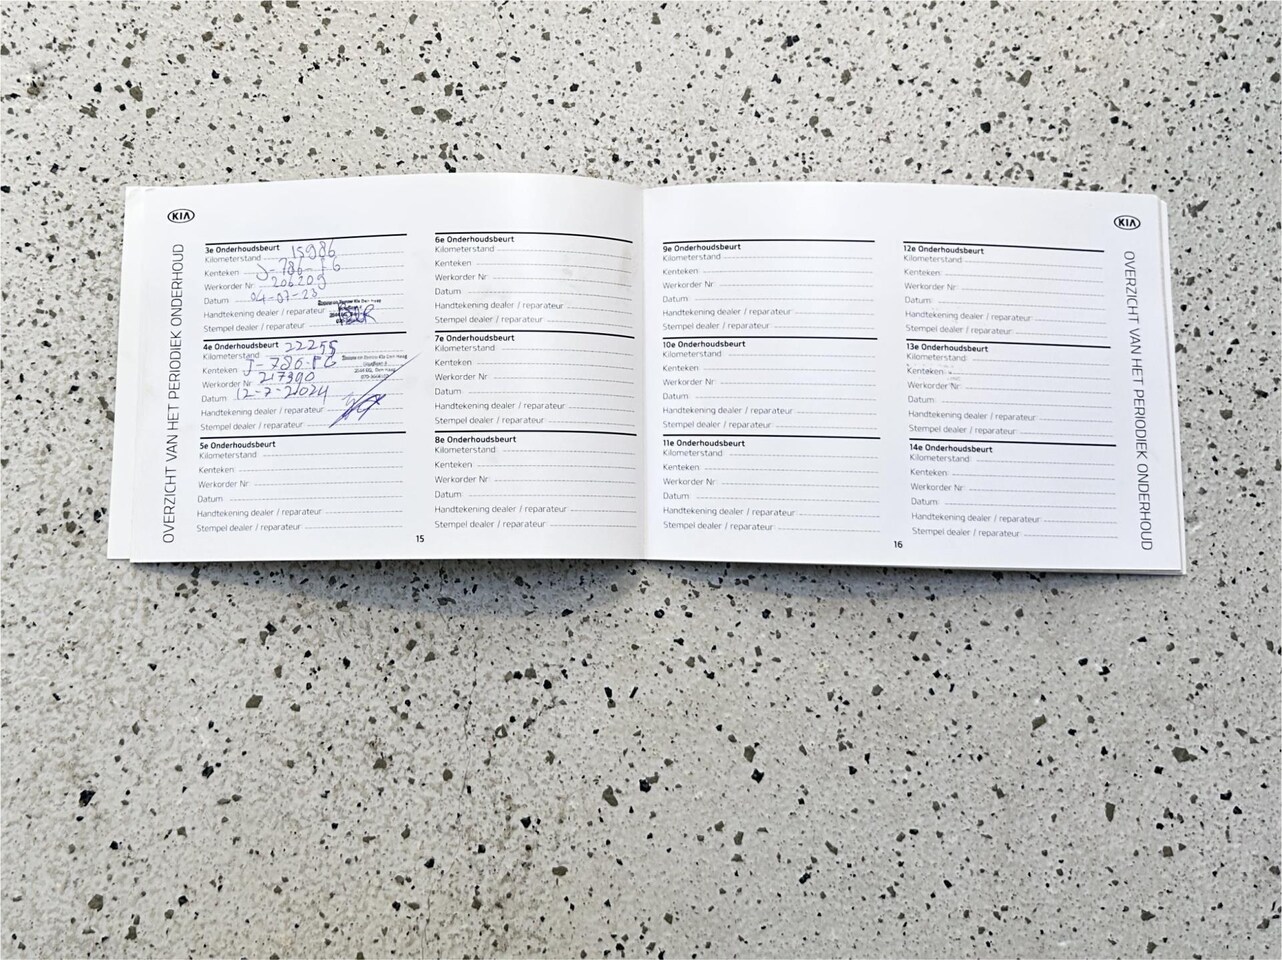 KIA
OVERZICHT VAN HET PERIODIEK ONDERHOUD
3e Onderhoudsbeurt
Kilometerstand 15986
Kenteken J-786-FG
Werkorder Nr 206209
Datum 04-07-23
Handtekening dealer / reparateur
Stempel dealer / reparateur
4e Onderhoudsbeurt
Kilometerstand 22255
Kenteken J-786-FG
Werkorder Nr 217390
Datum 12-7-2024
Handtekening dealer / reparateur
Stempel dealer / reparateur
5e Onderhoudsbeurt
Kilometerstand
Kenteken
Werkorder Nr
Datum
Handtekening dealer / reparateur
Stempel dealer / reparateur
6e Onderhoudsbeurt
Kilometerstand
Kenteken
Werkorder Nr
Datum
Handtekening dealer / reparateur
Stempel dealer / reparateur
7e Onderhoudsbeurt
Kilometerstand
Kenteken
Werkorder Nr
Datum
Handtekening dealer / reparateur
Stempel dealer / reparateur
8e Onderhoudsbeurt
Kilometerstand
Kenteken
Werkorder Nr
Datum
Handtekening dealer / reparateur
Stempel dealer / reparateur
15
9e Onderhoudsbeurt
Kilometerstand
Kenteken
Werkorder Nr
Datum
Handtekening dealer / reparateur
Stempel dealer / reparateur
10e Onderhoudsbeurt
Kilometerstand
Kenteken
Werkorder Nr
Datum
Handtekening dealer / reparateur
Stempel dealer / reparateur
11e Onderhoudsbeurt
Kilometerstand
Kenteken
Werkorder Nr
Datum
Handtekening dealer / reparateur
Stempel dealer / reparateur
12e Onderhoudsbeurt
Kilometerstand
Kenteken
Werkorder Nr
Datum
Handtekening dealer / reparateur
Stempel dealer / reparateur
13e Onderhoudsbeurt
Kilometerstand
Kenteken
Werkorder Nr
Datum
Handtekening dealer / reparateur
Stempel dealer / reparateur
14e Onderhoudsbeurt
Kilometerstand
Kenteken
Werkorder Nr
Datum
Handtekening dealer / reparateur
Stempel dealer / reparateur
16
KIA
OVERZICHT VAN HET PERIODIEK ONDERHOUD